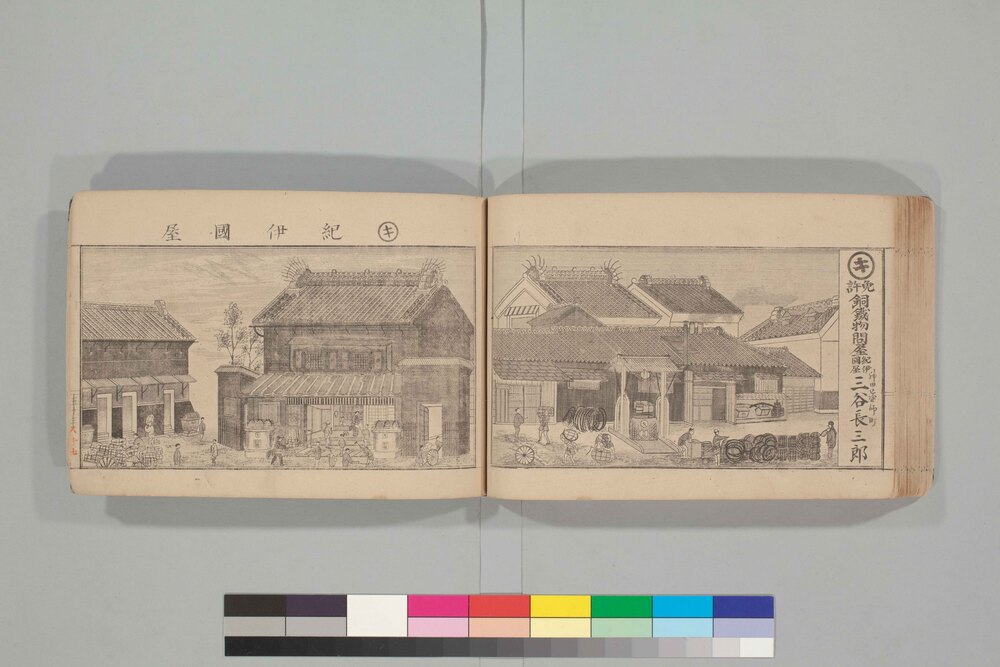 ㋖
免許
銅鐵物問屋
紀伊國屋
神田
師町
三谷長三郎
㋖ 紀伊國屋